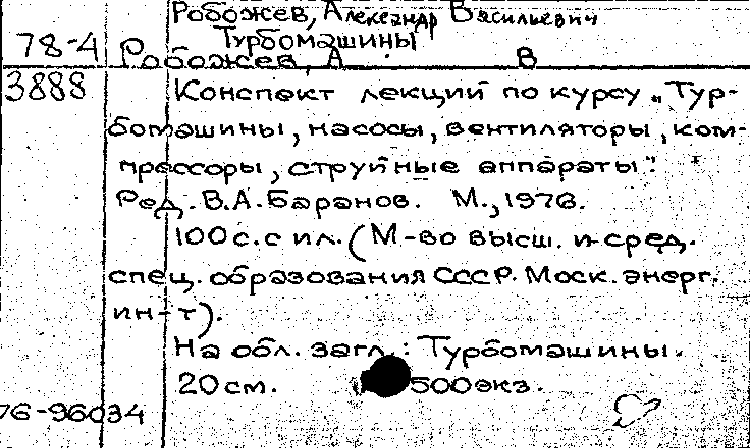 Робожев, Александр Васильевич
Турбомашины
78-4 Робожев, А В
3888 Конспект лекций по курсу „Тур-
бомашины, насосы, вентиляторы, ком-
прессоры, струйные аппараты".
Ред. В.А.Баранов. М., 1976.
100 с. с ил. (М-во высш. и сред.
спец. образования СССР. Моск. энерг.
ин-т).
На обл. загл.: Турбомашины.
20 см. 500 экз.
76-96034